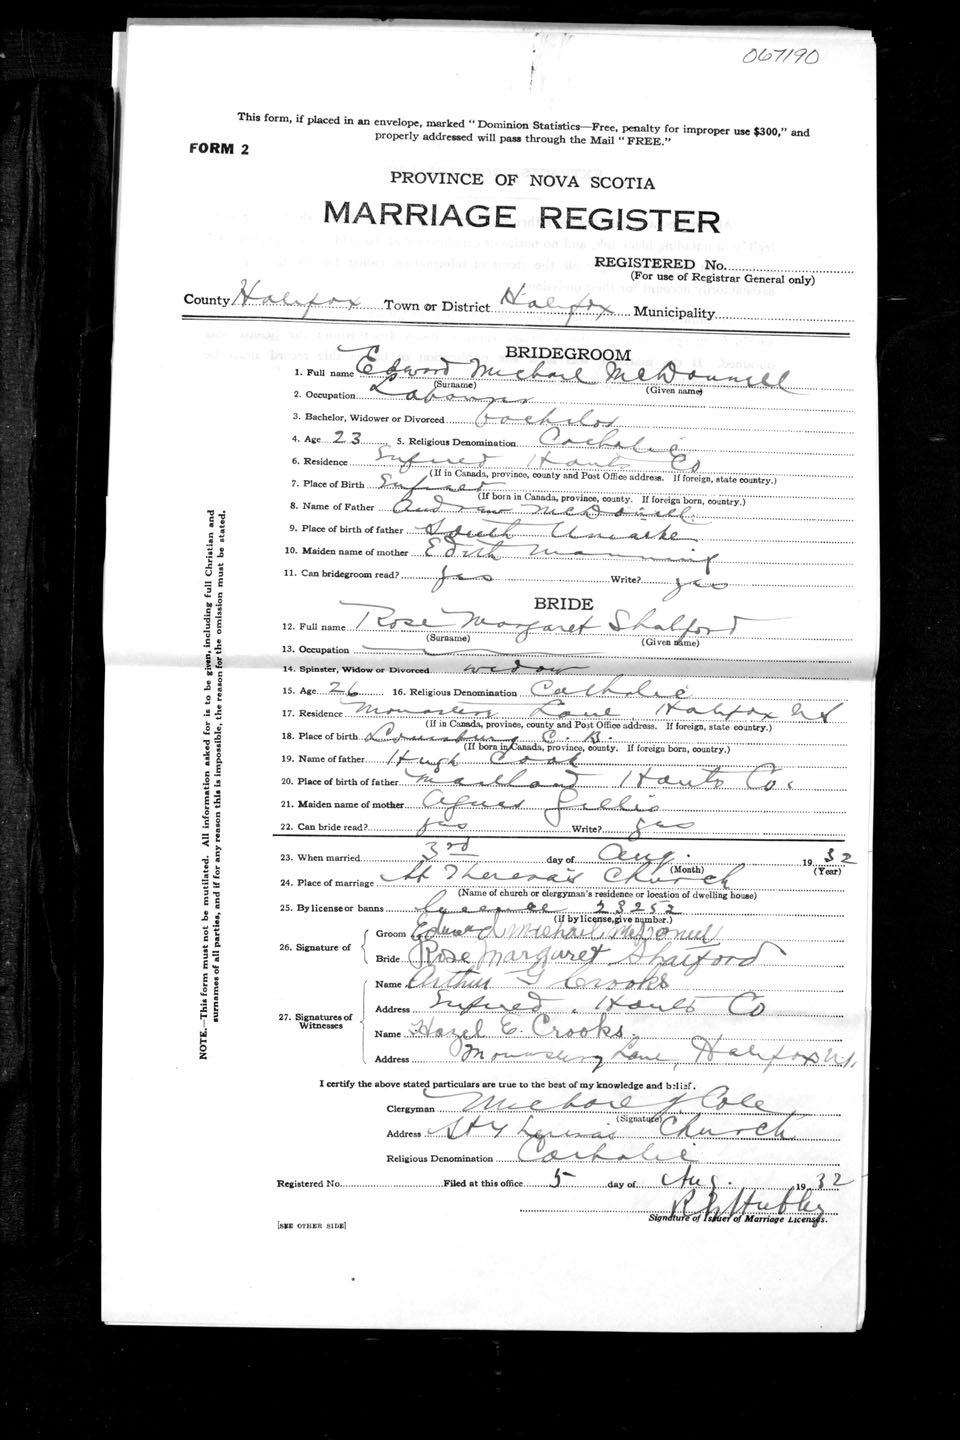 067190
This form, if placed in an envelope, marked "Dominion Statistics—Free, penalty for improper use $300," and
properly addressed will pass through the Mail "FREE."
FORM 2
PROVINCE OF NOVA SCOTIA
MARRIAGE REGISTER
REGISTERED No.
(For use of Registrar General only)
County Halifax Town or District Halifax Municipality
BRIDEGROOM
1. Full name Edward Michael McDonnell
(Surname) (Given name)
2. Occupation Laborer
3. Bachelor, Widower or Divorced bachelor
4. Age 23 5. Religious Denomination Catholic
6. Residence Enfield Hants Co
(If in Canada, province, county and Post Office address. If foreign, state country.)
7. Place of Birth Enfield
(If born in Canada, province, county. If foreign born, country.)
8. Name of Father Andrew McDonell
9. Place of birth of father South Uniacke
10. Maiden name of mother Edith Manning
11. Can bridegroom read? yes Write? yes
BRIDE
12. Full name Rose Margaret Shatford
(Surname) (Given name)
13. Occupation
14. Spinster, Widow or Divorced widow
15. Age 26 16. Religious Denomination Catholic
17. Residence Monastery Lane, Halifax NS
(If in Canada, province, county and Post Office address. If foreign, state country.)
18. Place of birth Louisburg C. B.
(If born in Canada, province, county. If foreign born, country.)
19. Name of father Hugh Cook
20. Place of birth of father Maitland Hants Co.
21. Maiden name of mother Agnes Gillis
22. Can bride read? yes Write? yes
23. When married 3rd day of Aug. 1932
(Month) (Year)
24. Place of marriage St Theresa's Church
(Name of church or clergyman's residence or location of dwelling house)
25. By license or banns license 23252
(If by license, give number.)
26. Signature of Groom Edward Michael McDonell
Bride Rose Margaret Shatford
27. Signatures of Witnesses Name Arthur G Crooks
Address Enfield, Hants Co
Name Hazel E. Crooks.
Address Monastery Lane, Halifax N.S.
I certify the above stated particulars are true to the best of my knowledge and belief.
Clergyman Michael J Cole
(Signature)
Address St Theresa's Church
Religious Denomination Catholic
Registered No. Filed at this office 5 day of Aug. 1932
Hubley
Signature of Issuer of Marriage Licenses.
[SEE OTHER SIDE]
NOTE.—This form must not be mutilated. All information asked for is to be given, including full Christian and
surnames of all parties, and if for any reason this is impossible, the reason for the omission must be stated.